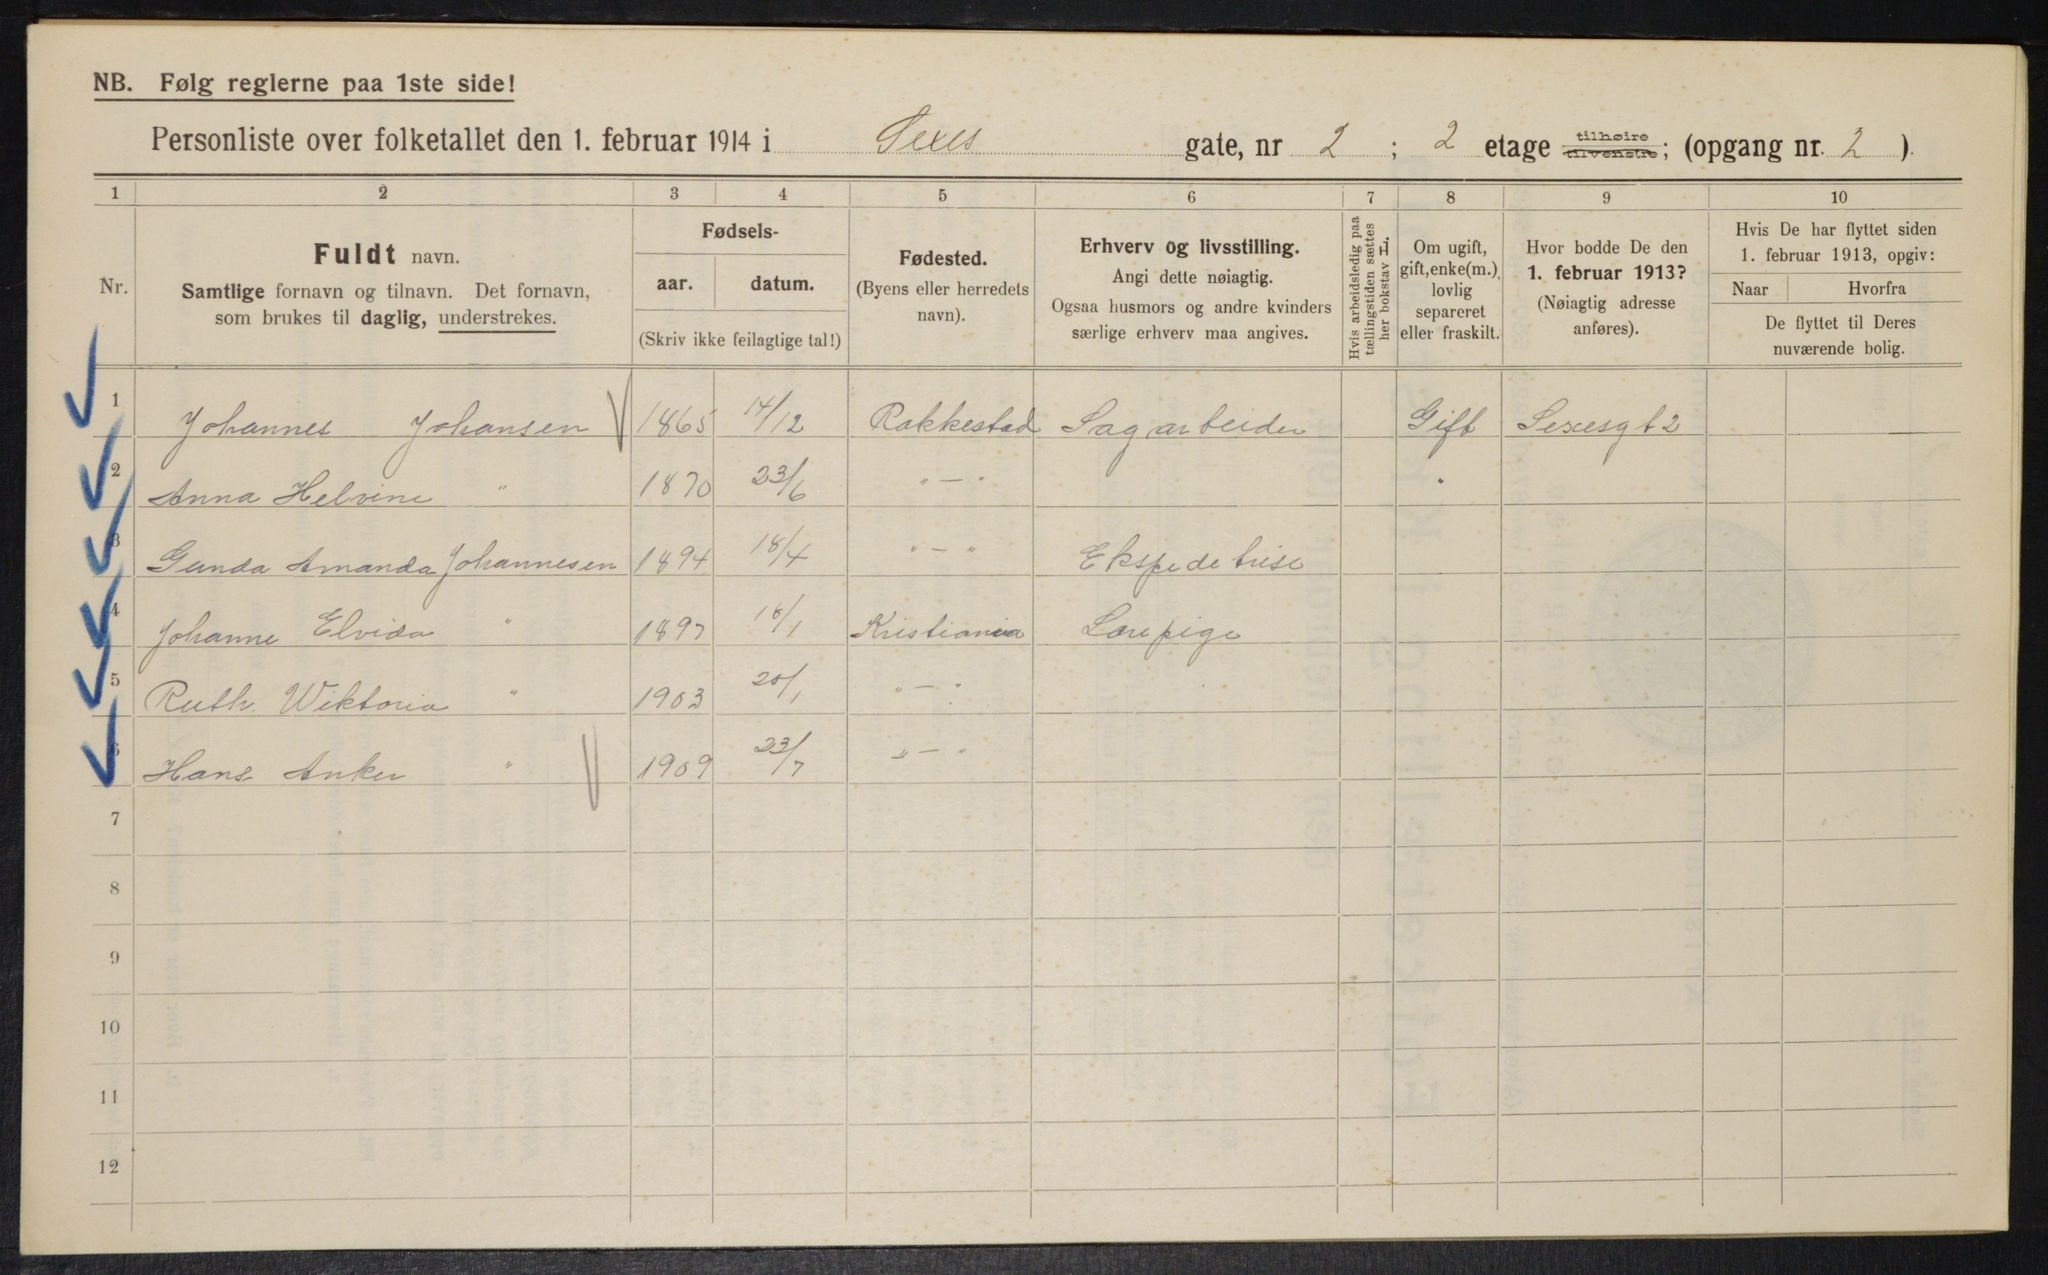 NB. Følg reglerne paa 1ste side!
Personliste over folketallet den 1. februar 1914 i Sexes gate, nr 2 ; 2 etage tilhøire tilvenstre; (opgang nr. 2 ).
1 2 3 4 5 6 7 8 9 10
Nr.
Fuldt navn.
Samtlige fornavn og tilnavn. Det fornavn,
som brukes til daglig, understrekes.
Fødsels-
aar. datum.
(Skriv ikke feilagtige tal!)
Fødested.
(Byens eller herredets
navn).
Erhverv og livsstilling.
Angi dette nøiagtig.
Ogsaa husmors og andre kvinders
særlige erhverv maa angives.
Hvis arbeidsledig paa
tællingstiden sættes
her bokstav L.
Om ugift,
gift, enke(m.),
lovlig
separeret
eller fraskilt.
Hvor bodde De den
1. februar 1913?
(Nøiagtig adresse
anføres).
Hvis De har flyttet siden
1. februar 1913, opgiv:
Naar Hvorfra
De flyttet til Deres
nuværende bolig.
1 Johannes Johansen 1865 14/12 Rakkestad Sagarbeider Gift Sexesgt 2
2 Anna Helvine " 1870 23/6 " — " "
3 Gunda Amanda Johannesen 1894 18/4 " — " Ekspedetrise
4 Johanne Elvida " 1897 18/1 Kristiania Lærepige
5 Ruth Wiktoria " 1903 20/1 " — "
6 Hans Anker " 1909 23/7 " — "
7
8
9
10
11
12